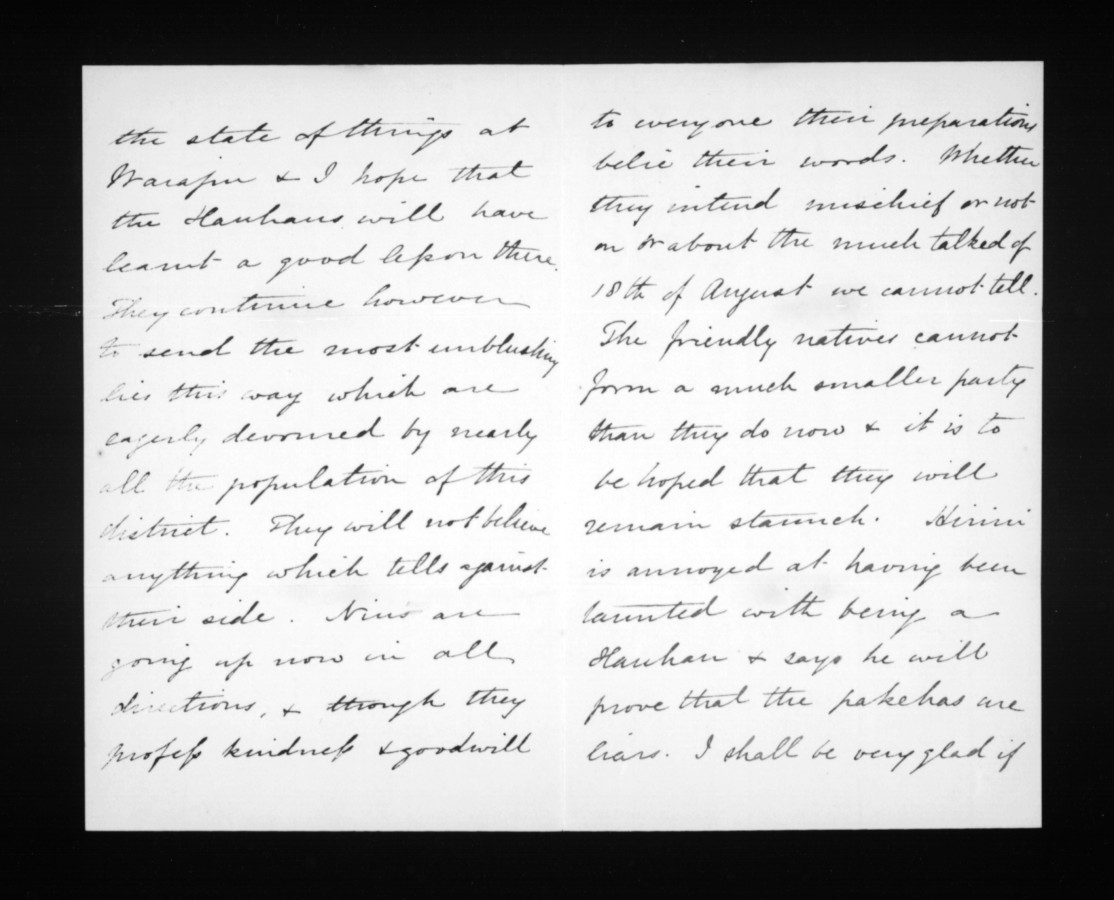 the state of things at
Waiapu & I hope that
the Hauhaus will have
learnt a good lesson there.
They continue however
to send the most unblushing
lies this way which are
eagerly devoured by nearly
all the population of this
district. They will not believe
anything which tells against
their side. Nius are
going up now in all
directions, & though they
profess kindness & goodwill
to everyone their preparations
belie their words. Whether
they intend mischief or not
on or about the much talked of
18th of August we cannot tell.
The friendly natives cannot
form a much smaller party
than they do now & it is to
be hoped that they will
remain staunch. Hirini
is annoyed at having been
taunted with being a
Hauhau & says he will
prove that the pakehas are
liars. I shall be very glad if